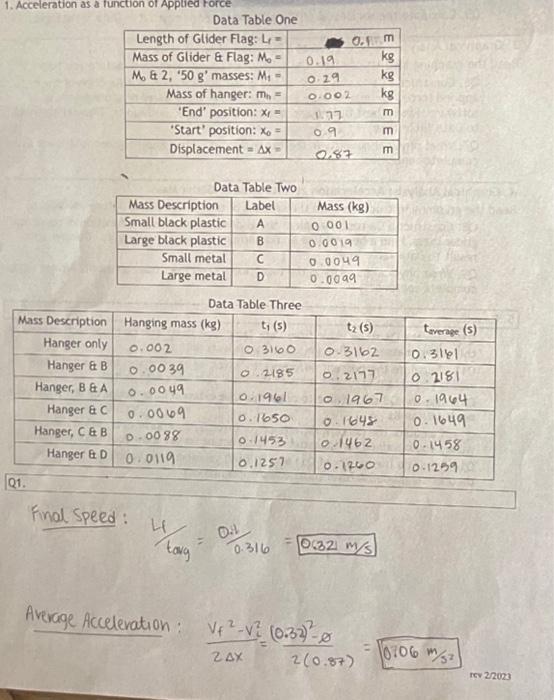 1. Acceleration as a function of Applied Force
Data Table One
Length of Glider Flag: Lf = 0.1 m
Mass of Glider & Flag: Mo = 0.19 kg
Mo & 2, '50 g' masses: M1 = 0.29 kg
Mass of hanger: mh = 0.002 kg
'End' position: xf = 1.77 m
'Start' position: xo = 0.9 m
Displacement = Δx = 0.87 m
Data Table Two
Mass Description Label Mass (kg)
Small black plastic A 0.001
Large black plastic B 0.0019
Small metal C 0.0049
Large metal D 0.0099
Data Table Three
Mass Description Hanging mass (kg) t1 (s) t2 (s) taverage (s)
Hanger only 0.002 0.3160 0.3162 0.3161
Hanger & B 0.0039 0.2185 0.2177 0.2181
Hanger, B & A 0.0049 0.1961 0.1967 0.1964
Hanger & C 0.0069 0.1650 0.1648 0.1649
Hanger, C & B 0.0088 0.1453 0.1462 0.1458
Hanger & D 0.0119 0.1257 0.1260 0.1259
Q1.
Final Speed: Lf/tavg = 0.1/0.316 = 0.321 m/s
Average Acceleration: Vf² - Vi² / 2Δx = (0.32)² - 0 / 2(0.87) = 0.06 m/s²
rev 2/2023